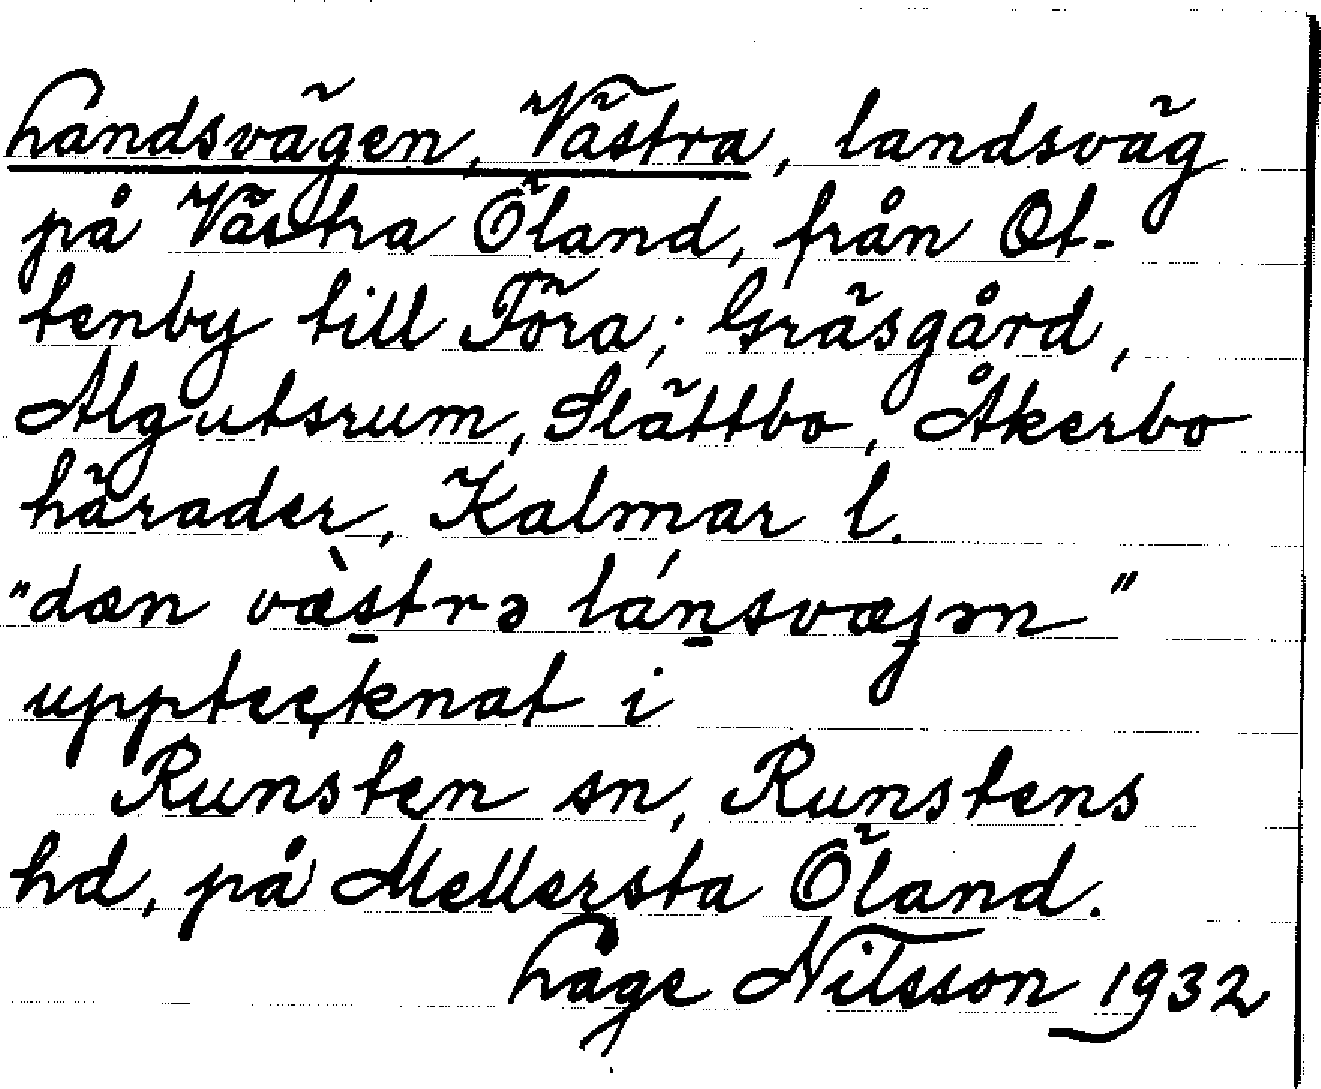 Landsvägen, Västra, landsväg
på Västra Öland, från Ot-
tenby till Föra; Gräsgård,
Algutsrum, Slättbo, Åkerbo
härader, Kalmar l.
"dæn væ̀strə lánsvæjən"
upptecknat i
Runsten sn, Runstens
hd, på Mellersta Öland.
Lage Nilsson 1932